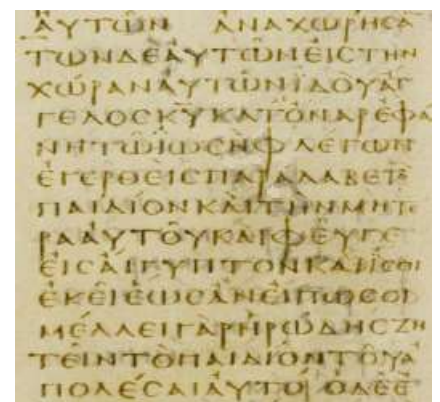 ΑΥΤΩΝ ΑΝΑΧΩΡΗϹΑ
ΤΩΝΔΕΑΥΤΩΝΕΙϹΤΗΝ
ΧΩΡΑΝΑΥΤΩΝΙΔΟΥΑΓ
ΓΕΛΟϹΚΥΚΑΤΟΝΑΡΕΦΑ
ΝΗΤΩΙΩϹΗΦΛΕΓΩΝ
ΕΓΕΡΘΕΙϹΠΑΡΑΛΑΒΕΤΟ
ΠΑΙΔΙΟΝΚΑΙΤΗΝΜΗΤΕ
ΡΑΑΥΤΟΥΚΑΙΦΕΥΓΕ
ΕΙϹΑΙΓΥΠΤΟΝΚΑΙΙϹΘΙ
ΕΚΕΙΕΩϹΑΝΕΙΠΩϹΟΙ
ΜΕΛΛΕΙΓΑΡΗΡΩΔΗϹΖΗ
ΤΕΙΝΤΟΠΑΙΔΙΟΝΤΟΥΑ
ΠΟΛΕϹΑΙΑΥΤΟ ΟΔΕΕ